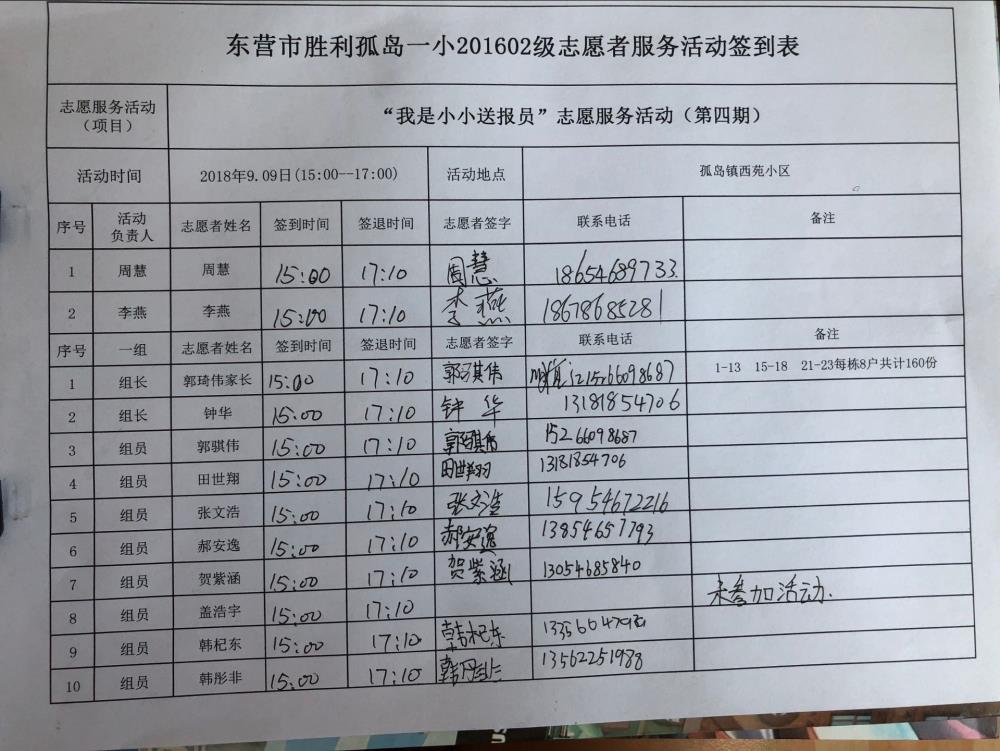 东营市胜利孤岛一小201602级志愿者服务活动签到表
志愿服务活动（项目） “我是小小送报员”志愿服务活动（第四期）
活动时间 2018年9.09日(15:00--17:00) 活动地点 孤岛镇西苑小区
序号 活动负责人 志愿者姓名 签到时间 签退时间 志愿者签字 联系电话 备注
1 周慧 周慧 15:00 17:10 周慧 18654689733
2 李燕 李燕 15:00 17:10 李燕 18678685281
序号 一组 志愿者姓名 签到时间 签退时间 志愿者签字 联系电话 备注
1 组长 郭琦伟家长 15:00 17:10 郭骐伟 15266098687 1-13 15-18 21-23每栋8户共计160份
2 组长 钟华 15:00 17:10 钟华 13181854706
3 组员 郭骐伟 15:00 17:10 郭骐伟 15266098687
4 组员 田世翔 15:00 17:10 田世翔 13181854706
5 组员 张文浩 15:00 17:10 张文浩 15954672216
6 组员 郝安逸 15:00 17:10 郝安逸 13854657793
7 组员 贺紫涵 15:00 17:10 贺紫涵 13054685840
8 组员 盖浩宇 15:00 17:10 未参加活动.
9 组员 韩杞东 15:00 17:10 韩杞东
10 组员 韩彤非 15:00 17:10 韩彤非 13562251988